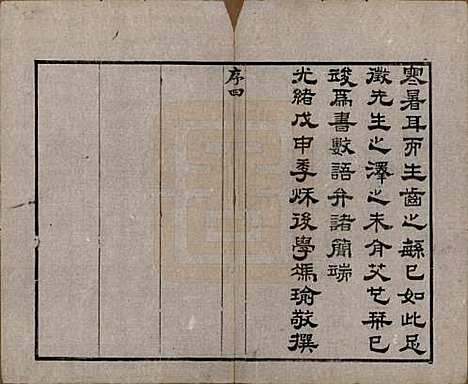 寒暑耳而生齒之繇已如此足
徵先生之澤之未有艾也琹已
竣爲書數語弁諸簡端
光緒戊申季秌後學馮瑜敬撰
序四